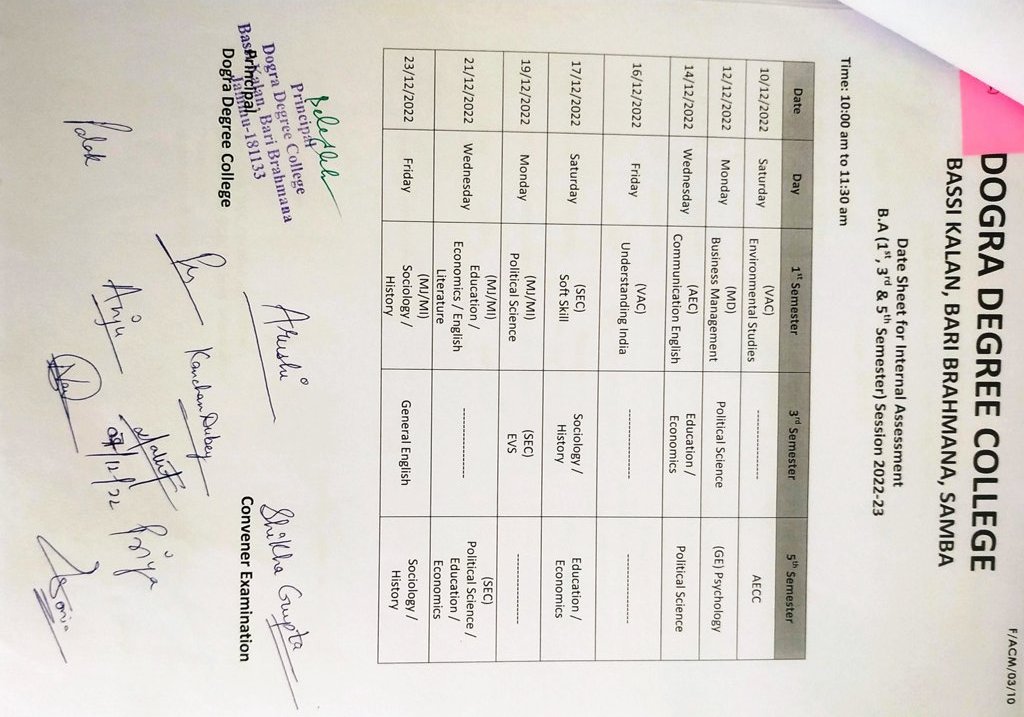 F/ACM/03/10
DOGRA DEGREE COLLEGE
BASSI KALAN, BARI BRAHMANA, SAMBA
Date Sheet for Internal Assessment
B.A (1st, 3rd & 5th Semester) Session 2022-23
Time: 10:00 am to 11:30 am
Date Day 1st Semester 3rd Semester 5th Semester
10/12/2022 Saturday (VAC) Environmental Studies ------------- AECC
12/12/2022 Monday (MD) Business Management Political Science (GE) Psychology
14/12/2022 Wednesday (AEC) Communication English Education / Economics Political Science
16/12/2022 Friday (VAC) Understanding India ------------- -------------
17/12/2022 Saturday (SEC) Soft Skill Sociology / History Education / Economics
19/12/2022 Monday (MJ/MI) Political Science (SEC) EVS -------------
21/12/2022 Wednesday (MJ/MI) Education / Economics / English Literature ------------- (SEC) Political Science / Education / Economics
23/12/2022 Friday (MJ/MI) Sociology / History General English Sociology / History
Principal
Dogra Degree College
Bassi Kalan, Bari Brahmana
Jammu-181133
Principal
Dogra Degree College
Arushi
Shikha Gupta
Convener Examination
Kanchan Dubey
Anju
09/12/22
Priya
Palak